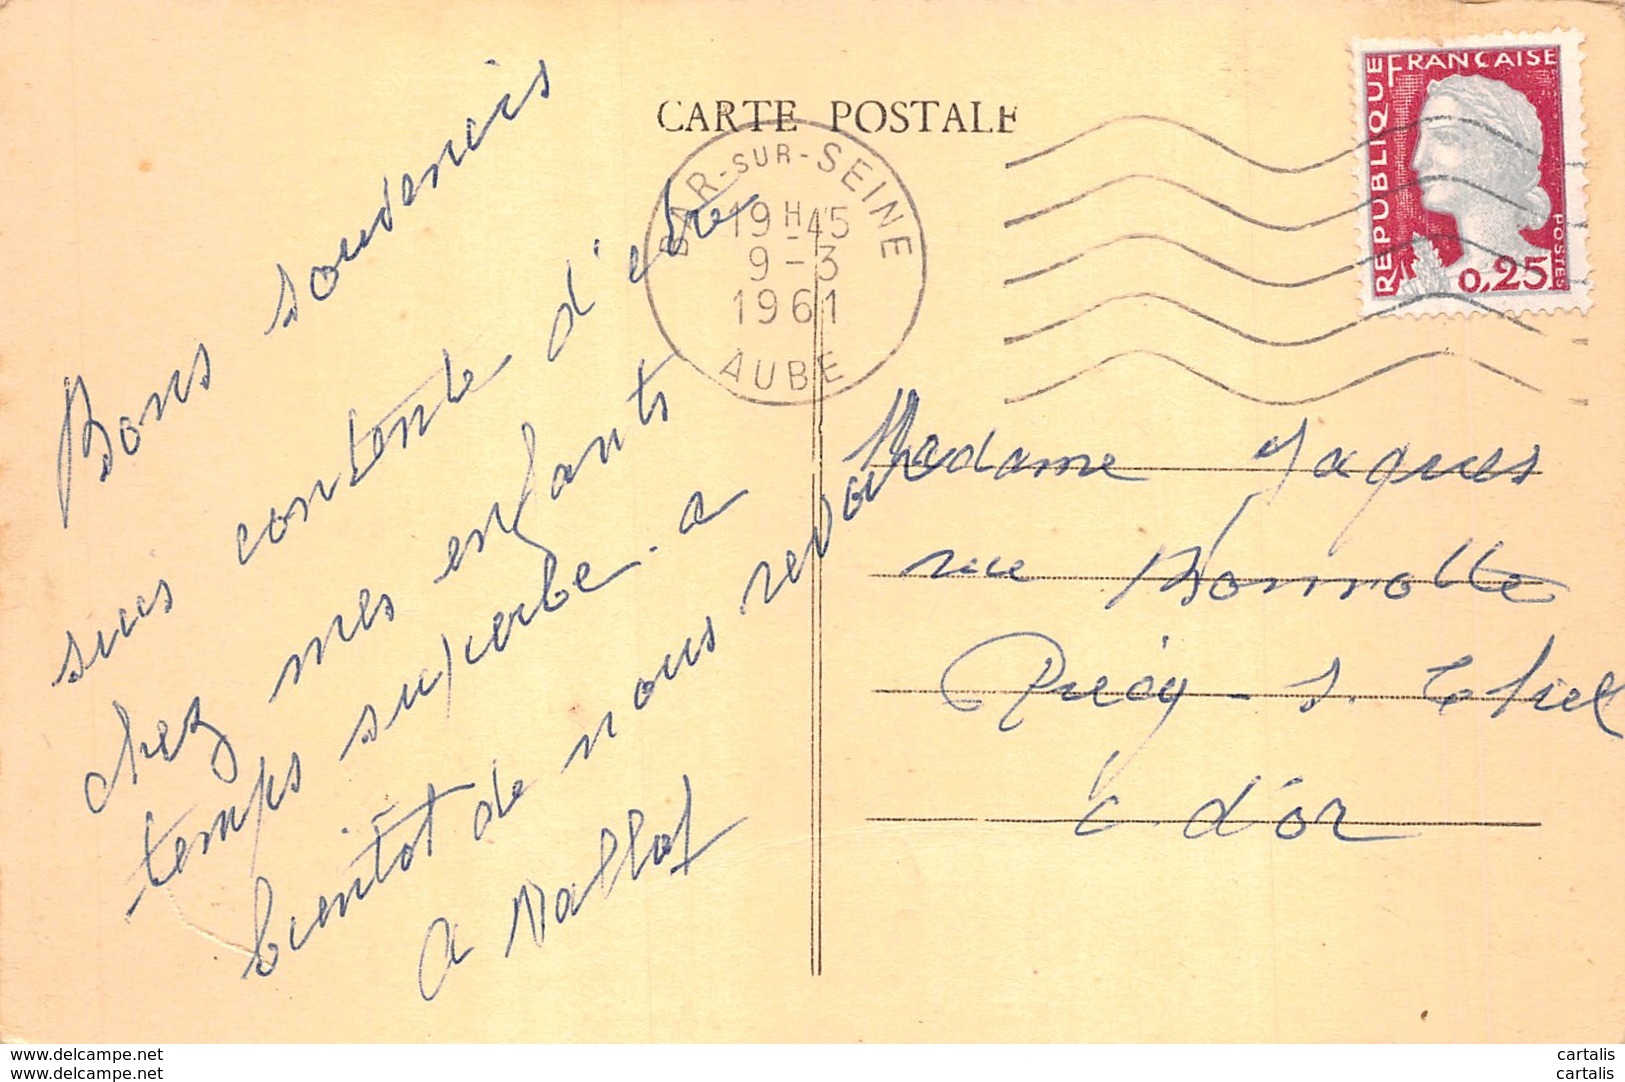 CARTE POSTALE
BAR-SUR-SEINE
19H45
9-3
1961
AUBE
REPUBLIQUE FRANCAISE
POSTES
0,25
Bons souvenirs
suis contente d'etre
chez mes enfants
temps superbe. a
bientôt de nous revoir
A Mallot
Madame Jaques
rue Bonnotte
Précy-s. Thil
C. d'or
www.delcampe.net
www.delcampe.net
cartalis
cartalis